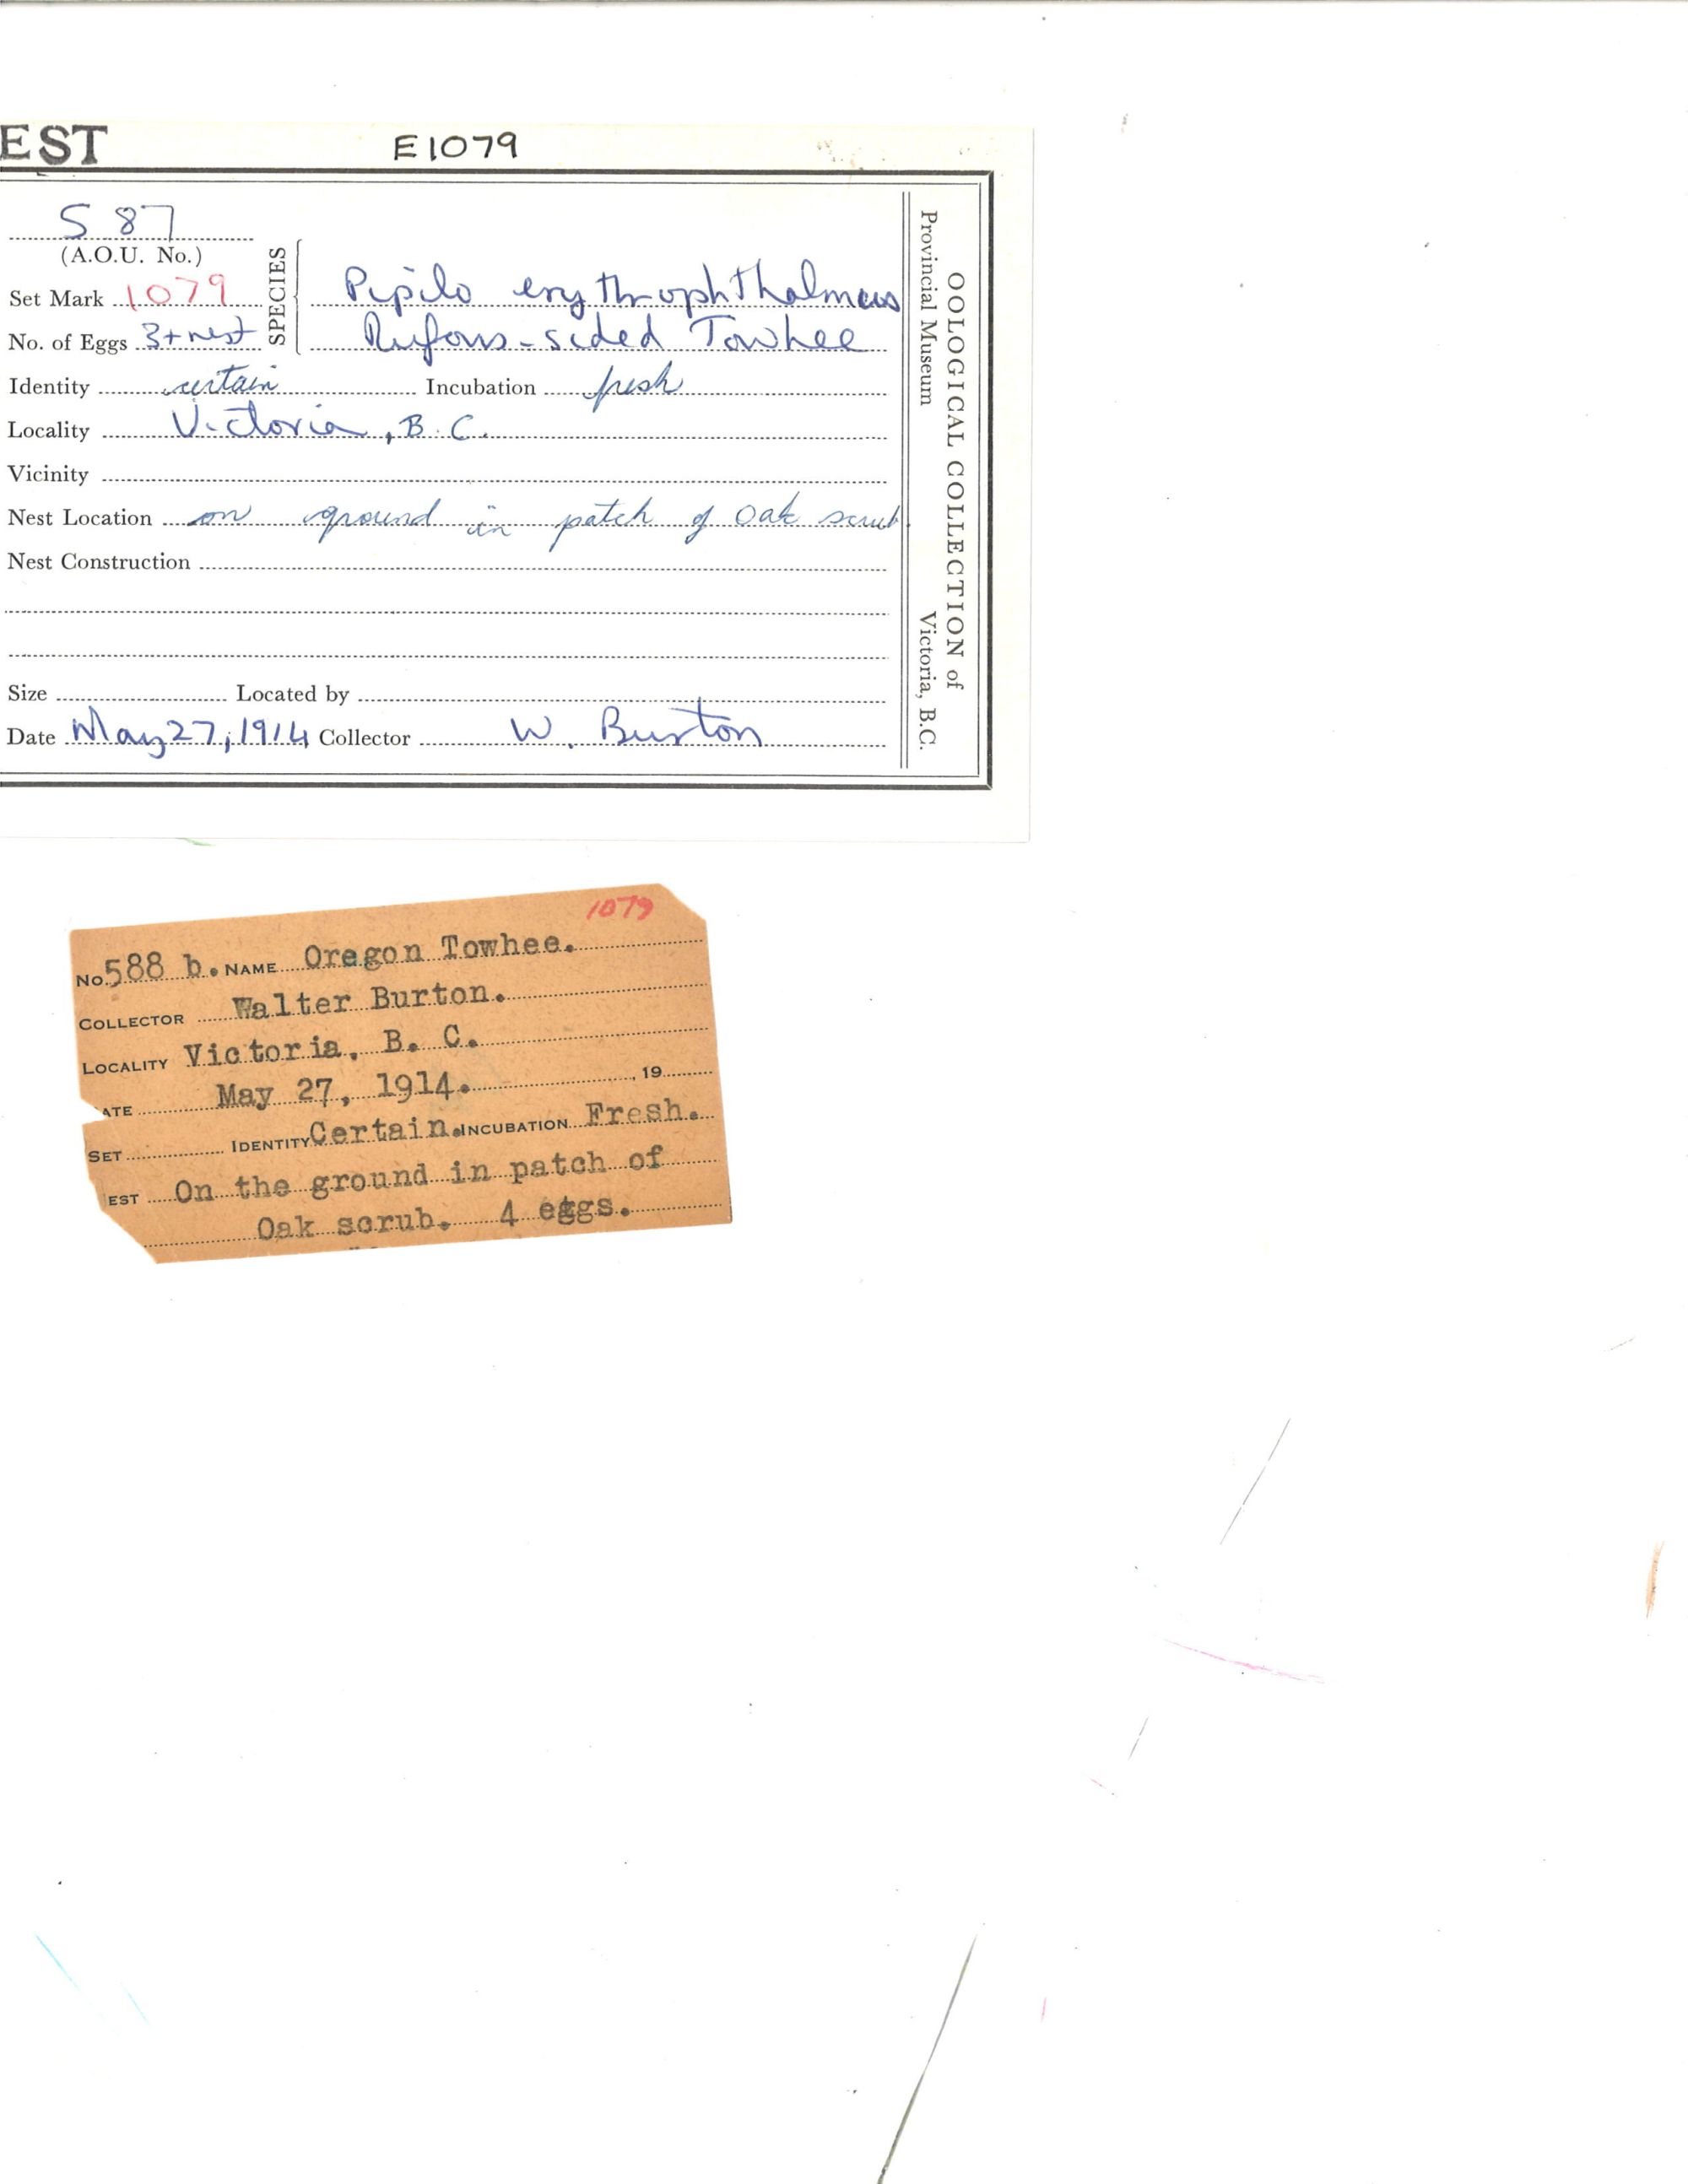 EST
E1079
587
(A.O.U. No.)
SPECIES
Set Mark 1079
Pipilo erythrophthalmus
No. of Eggs 3+nest
Rufous-sided Towhee
Identity certain Incubation fresh
Locality Victoria, B.C.
Vicinity
Nest Location on ground in patch of Oak scrub.
Nest Construction
Size Located by
Date May 27, 1914 Collector W. Burton
OOLOGICAL COLLECTION of
Provincial Museum Victoria, B.C.
1079
No. 588 b. NAME Oregon Towhee.
COLLECTOR Walter Burton.
LOCALITY Victoria, B. C.
ATE May 27, 1914. , 19
SET IDENTITY Certain. INCUBATION Fresh.
EST On the ground in patch of
Oak scrub. 4 eggs.